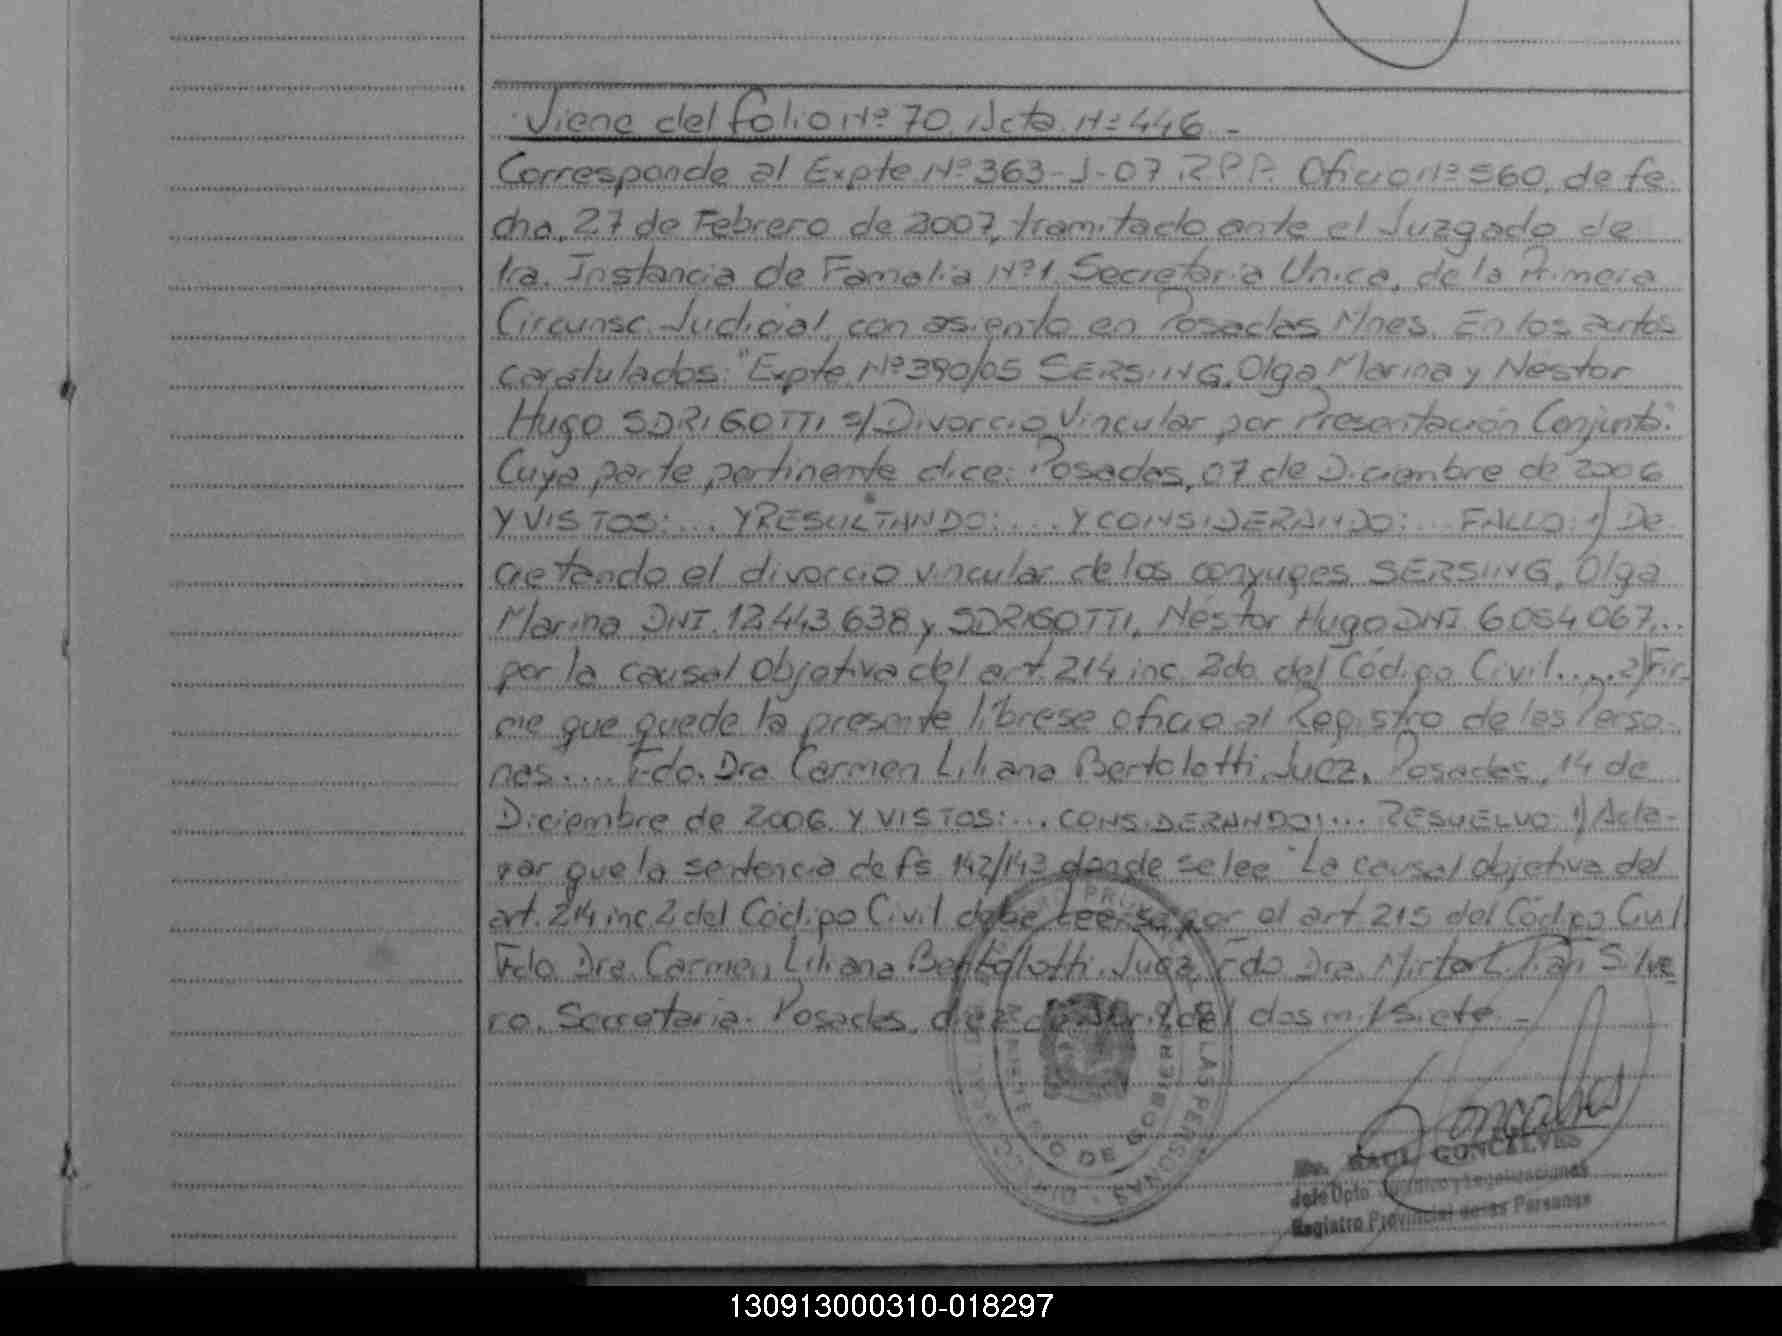 Viene del folio Nº 70 Acta Nº 446 -
Corresponde al Expte Nº 363-J-07 R.P.P. Oficio Nº 560, de fe
cha, 27 de Febrero de 2007, tramitado ante el Juzgado de
1ra. Instancia de Familia Nº 1, Secretaria Unica, de la Primera
Circunsc. Judicial, con asiento en Posadas Mnes. En los autos
caratulados: "Expte. Nº 390/05 SERSING, Olga Marina y Nestor
Hugo SDRIGOTTI s/Divorcio Vincular por Presentación Conjunta".
Cuya parte pertinente dice: Posadas, 07 de Diciembre de 2006
Y VISTOS:... Y RESULTANDO:... Y CONSIDERANDO:... FALLO: 1) De
cretando el divorcio vincular de los conyuges SERSING, Olga
Marina DNI. 12.443.638 y SDRIGOTTI, Néstor Hugo DNI 6.054.067...
por la causal objetiva del art. 214 inc. 2do. del Código Civil..... 2) Fir-
me que quede la presente líbrese oficio al Registro de las Perso-
nas.... Fdo. Dra Carmen Liliana Bertolotti. Juez. Posadas, 14 de
Diciembre de 2006 Y VISTOS:... CONSIDERANDO:... RESUELVO: 1) Acla-
rar que la sentencia de fs 142/143 donde se lee "La causal objetiva del
art. 214 inc. 2 del Código Civil debe leerse por el art. 215 del Código Civil
Fdo. Dra. Carmen Liliana Bertolotti. Juez, Fdo Dra. Mirta L. Silve
ro. Secretaria. Posadas, diez de Abril del dos mil siete -
LAS PERSONAS
MINISTERIO DE GOBIERNO
RAUL GONCALVES
Jefe Dpto. Jurídico y Legalizaciones
Registro Provincial de las Personas
130913000310-018297